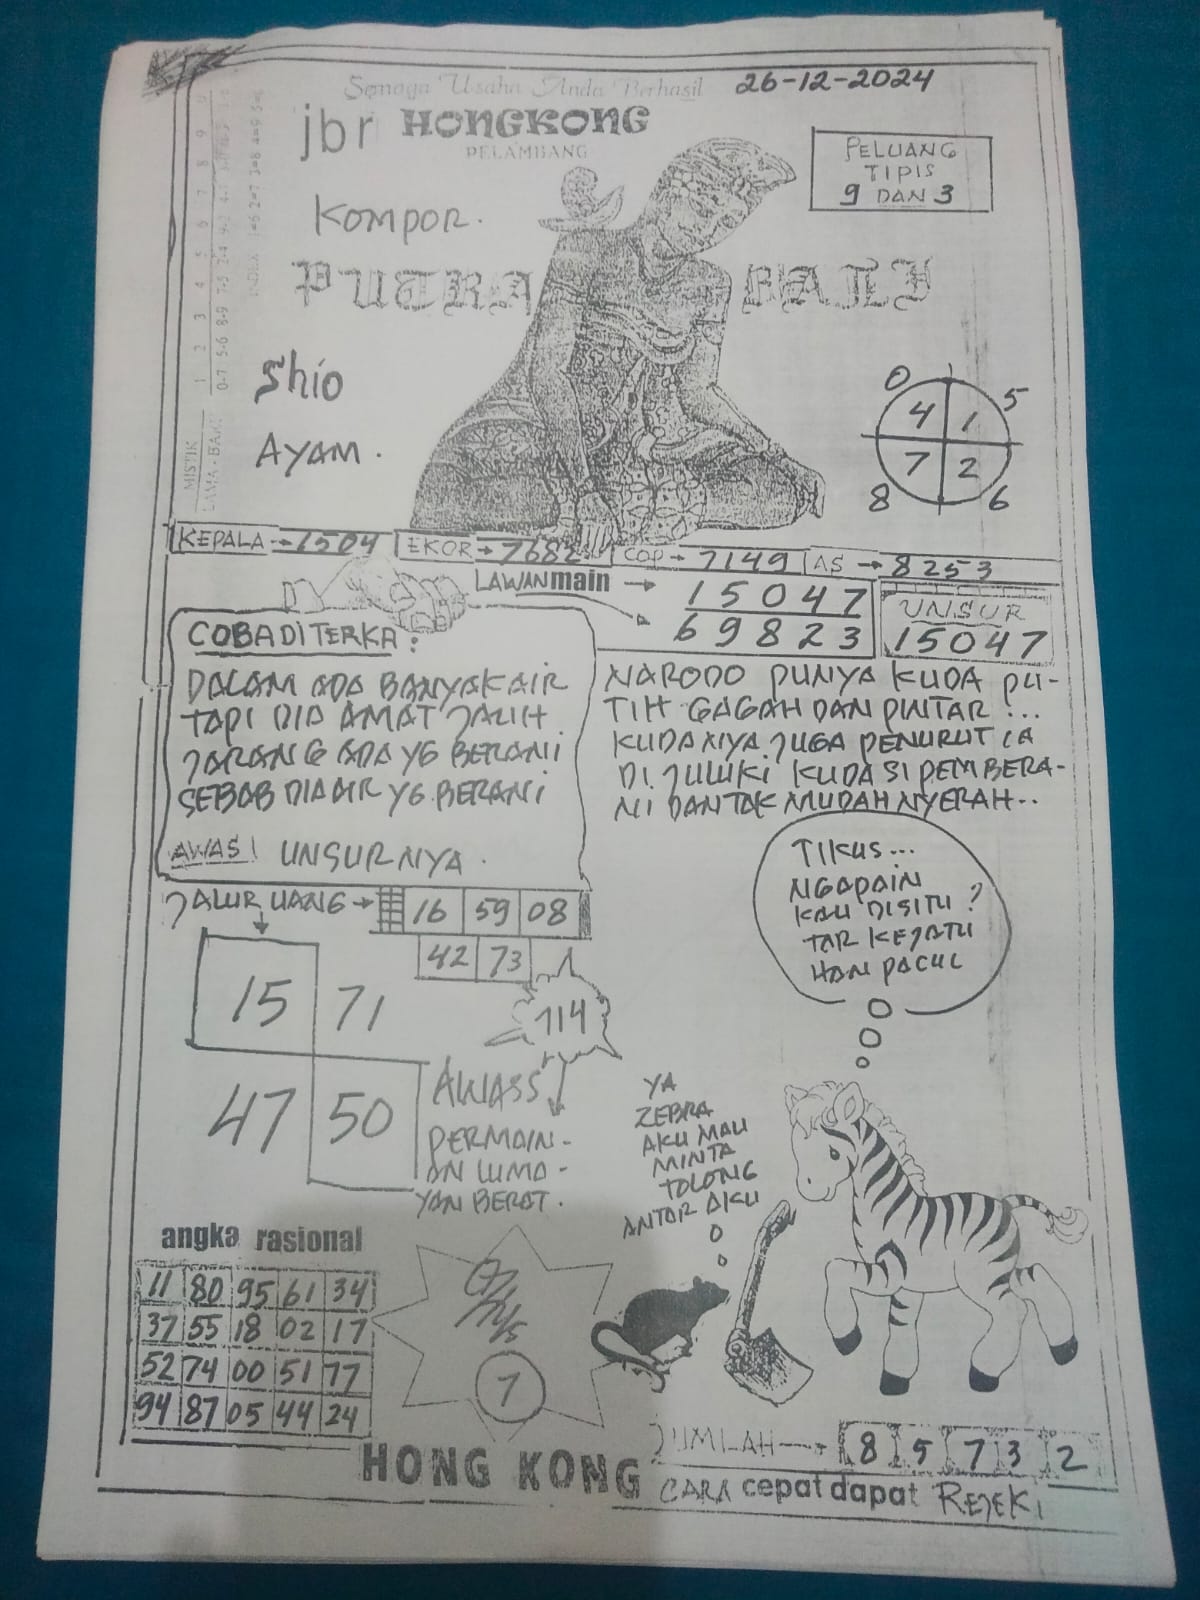 26-12-2024
Semoga Usaha Anda Berhasil
jbr HONGKONG
PELAMBANG
PELUANG
TIPIS
9 DAN 3
KOMPOR.
PUTRA BALI
Shio
AYAM.
MISTIK
LAMA - BARU
0 5
4 1
7 2
8 6
KEPALA → 1504 EKOR → 7682 COP → 7149 AS → 8253
LAWAN main → 15047
69823
UNSUR
15047
COBA DI TERKA :
DALAM ADA BANYAK AIR
TAPI DIA AMAT JALIH
JARANG ADA YG BERANI
SEBAB DIA AIR YG BERANI
AWAS! UNSURNYA.
NARODO PUNYA KUDA PU-
TIH GAGAH DAN PINTAR !...
KUDANYA JUGA PENURUT IA
DI JULUKI KUDA SI PEMBERA-
NI DAN TAK MUDAH NYERAH..
JALUR UANG → 16 59 08
42 73
15 71
47 50
114
AWASS
PERMAIN-
AN LUMA-
YAN BERAT.
TIKUS...
NGAPAIN
KAU DISITU?
TAR KEJATU
HAN PACUL
YA
ZEBRA
AKU MAU
MINTA
TOLONG
ANTAR AKU
angka rasional
11 80 95 61 34
37 55 18 02 17
52 74 00 51 77
94 87 05 44 24
7
JUMLAH → 8 5 7 3 2
HONG KONG
CARA cepat dapat REJEKI